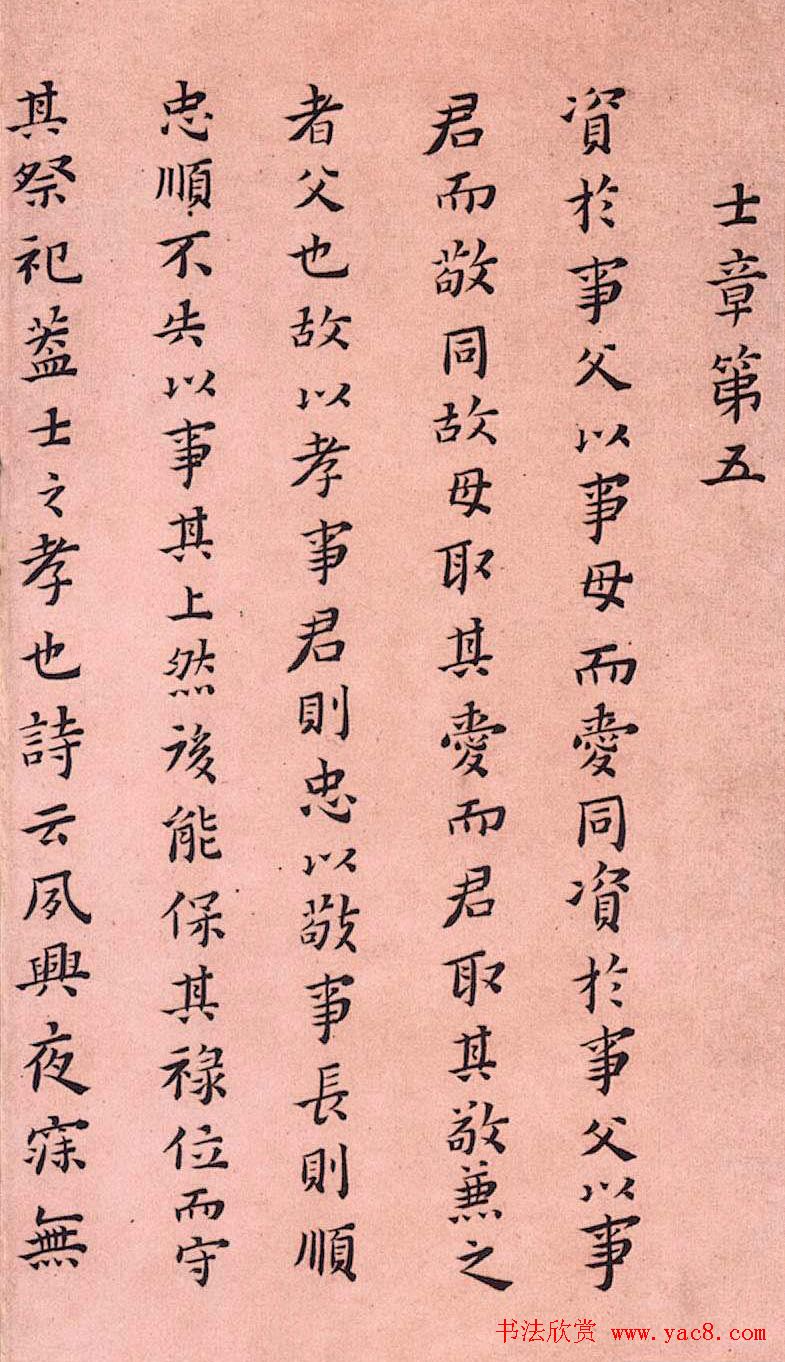 士章第五
資於事父以事母而愛同資於事父以事
君而敬同故母取其愛而君取其敬兼之
者父也故以孝事君則忠以敬事長則順
忠順不失以事其上然後能保其祿位而守
其祭祀葢士之孝也詩云夙興夜寐無
书法欣赏 www.yac8.com